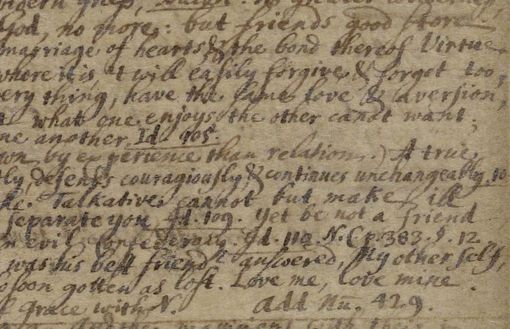 God, no more: but friends good store
marriage of hearts, & the bond thereof Virtue
where it is 't will easily forgive, & forget too,
ery thing, have the same love & aversion,
t what one enjoys the other can̄ot want;
ne another. Id. 905.
wn by experience than relation.) A true
ly, defends couragiously, & continues unchangeably. 10
Talkative can̄ot but make ill
separate you. Id. 109. Yet be not a friend
n evil confederacy. Id. 110. N.C p. 383. §. 12
was his best friend? answered, My other self,
soon gotten as lost. Love me, love mine.
f Grace with N. add Nū. 429.